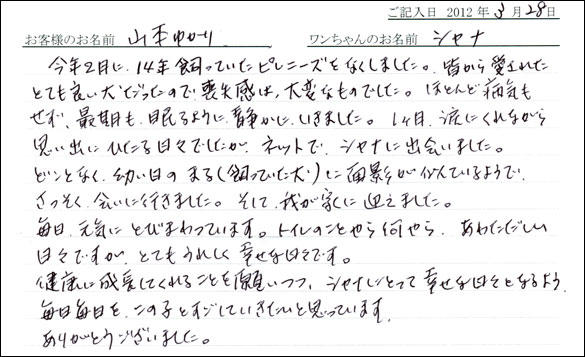 ご記入日 2012年3月28日
お客様のお名前 山本ゆかり ワンちゃんのお名前 シャナ
今年2月に、14年飼っていたピレニーズをなくしました。皆から愛された
とても良い犬だったので喪失感は、大変なものでした。ほとんど病気も
せず、最期も、眠るように、静かに、いきました。1ヶ月、涙にくれながら
思い出にひたる日々でしたが、ネットで、シャナに出会いました。
どことなく、幼い日のまる(飼っていた犬)に面影が似ているようで、
さっそく、会いに行きました。そして、我が家に迎えました。
毎日、元気にとびまわっています。トイレのことやら何やら、あわただしい
日々ですが、とてもうれしく幸せな日々です。
健康に成長してくれることを願いつつ、シャナにとって幸せな日々となるよう、
毎日毎日を、この子とすごしていきたいと思っています。
ありがとうございました。